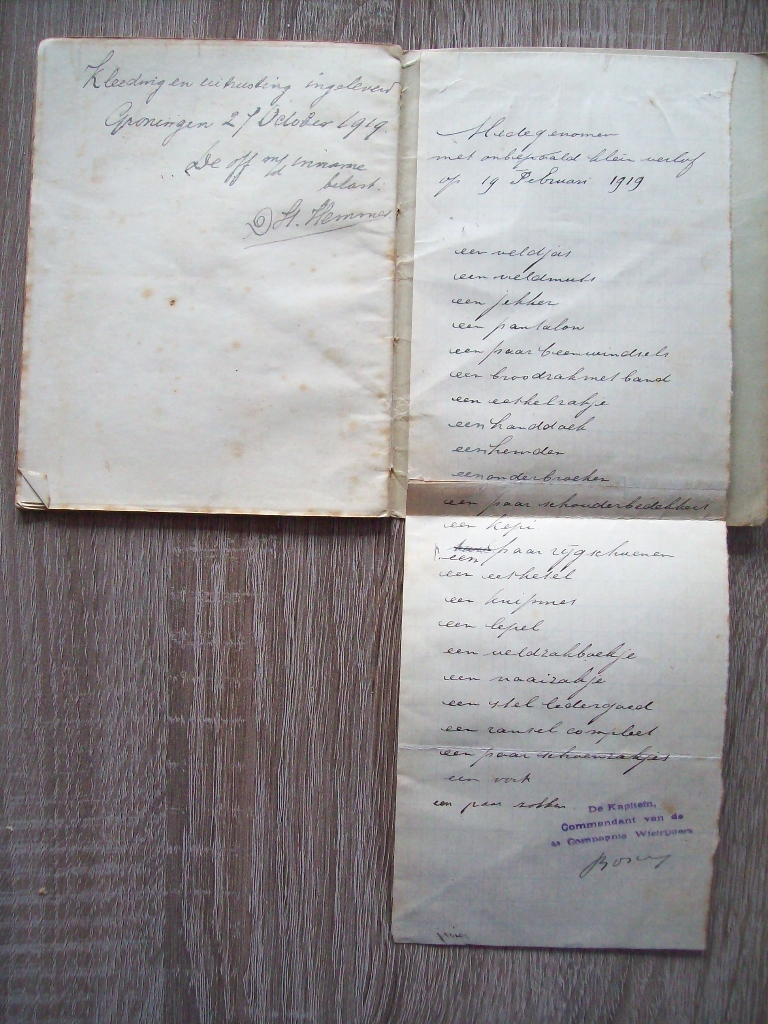 Kleeding en uitrusting ingeleverd
Groningen 27 October 1919.
De off m/d inname
belast.
Medegenomen
met onbepaald klein verlof
op 19 Februari 1919
een veldjas
een veldmuts
een jekker
een pantalon
een paar beenwindsels
een broodzak met band
een eetketelzakje
een handdoek
een hemden
een onderbroeken
een paar schouderbedekkers
een kepi
een paar rijgschoenen
een eetketel
een knipmes
een lepel
een veldzakboekje
een naaizakje
een stel ledergoed
een ransel compleet
een paar schoenzakjes
een vork
een paar sokken
De Kapitein,
Commandant van de
Compagnie Wielrijders